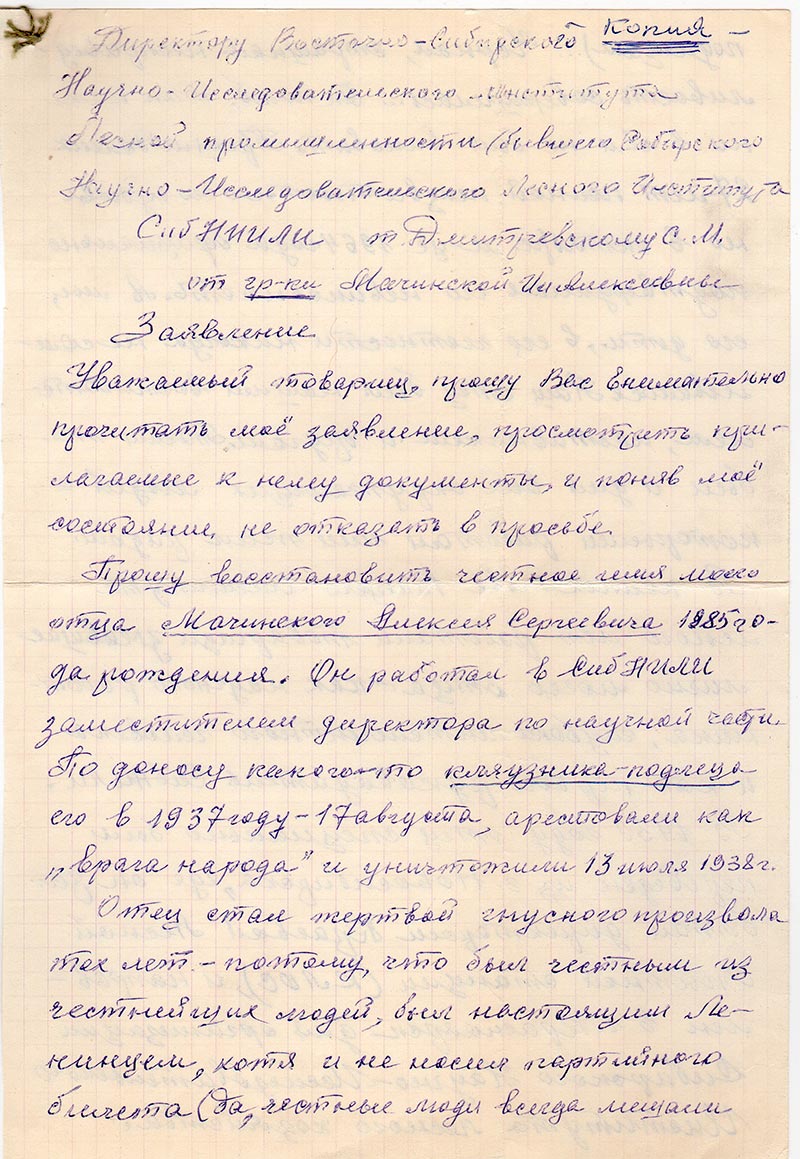 Копия —
Директору Восточно-Сибирского
Научно-Исследовательского Института
Лесной промышленности (бывшего Сибирского
Научно-Исследовательского Лесного Института
СибНИИЛИ т. Дмитревскому С.М.
от гр-ки Мачинской Ии Алексеевны
Заявление
Уважаемый товарищ, прошу Вас внимательно
прочитать моё заявление, просмотрить при-
лагаемые к нему документы, и поняв моё
состояние, не отказать в просьбе.
Прошу восстановить честное имя моего
отца Мачинского Алексея Сергеевича 1885 го-
да рождения. Он работал в СибНИЛИ
заместителем директора по научной части.
По доносу какого-то кляузника-подлеца
его в 1937 году – 17 августа, арестовали как
„врага народа" и уничтожили 13 июля 1938 г.
Отец стал жертвой гнусного произвола
тех лет – потому, что был честным из
честнейших людей, был настоящим Ле-
нинцем, хотя и не носил партийного
билета (Да, честные люди всегда мешали